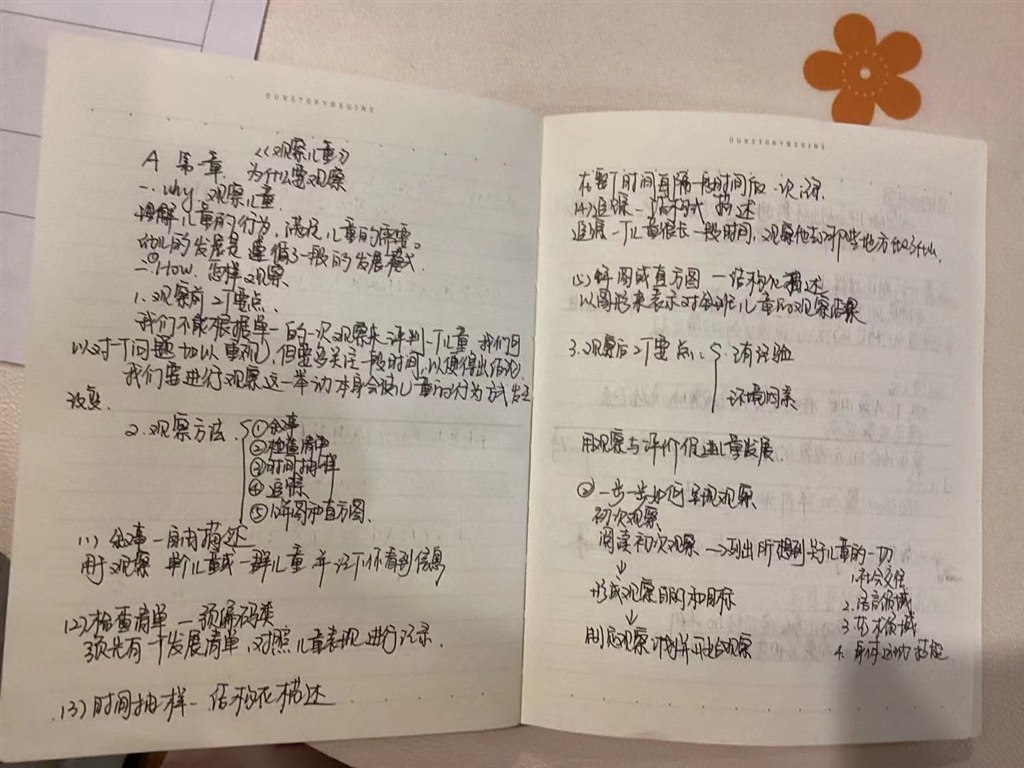 OURSTORYBEGINS
《观察儿童》
A 第一章. 为什么要观察
一. why 观察儿童
理解儿童的行为, 满足儿童的需要。
幼儿的发展是遵循了一般的发展模式.
二. How. 怎样观察
1. 观察前2个要点.
我们不能根据单一的一次观察来评判一个儿童, 我们可
以对一个问题加以重视, 但要多关注一段时间, 以便得出结论.
我们要进行观察这一举动本身会使儿童的行为方式发生
改变.
2. 观察方法.
①叙事
②检查清单
③时间抽样
④追踪
⑤饼图和直方图.
(1) 叙事 — 自由描述
用于观察单个儿童或一群儿童并记下你看到信息
(2) 检查清单 — 预编码类
预先有一个发展清单, 对照儿童表现进行记录.
(3) 时间抽样 — 结构化描述
OURSTORYBEGINS
在整个时间每隔一段时间应一次记录
(4) 追踪 — 结构式描述
追踪一个儿童很长一段时间, 观察他去了哪些地方
(5) 饼图或直方图 — 结构化描述
以图形来表示对全班儿童的观察结果
3. 观察后2个要点:
没有经验
环境因素
用观察与评价促进儿童发展.
② 一步一步如何实现观察
初次观察
阅读初次观察 → 列出所想到关于儿童的一切
1. 社会交往
↓
形成观察目的和目标
2. 语言领域
3. 艺术领域
↓
制定观察计划并开始观察
4. 身体运动技能